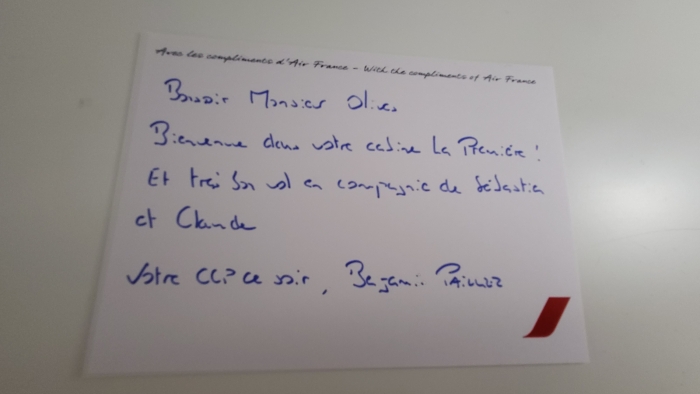 Avec les compliments d'Air France - With the compliments of Air France
Bonsoir Monsieur
Bienvenue dans votre cabine La Première !
Et très bon vol en compagnie de Sébastien
et Claude
Votre CCP ce soir, Benjamin